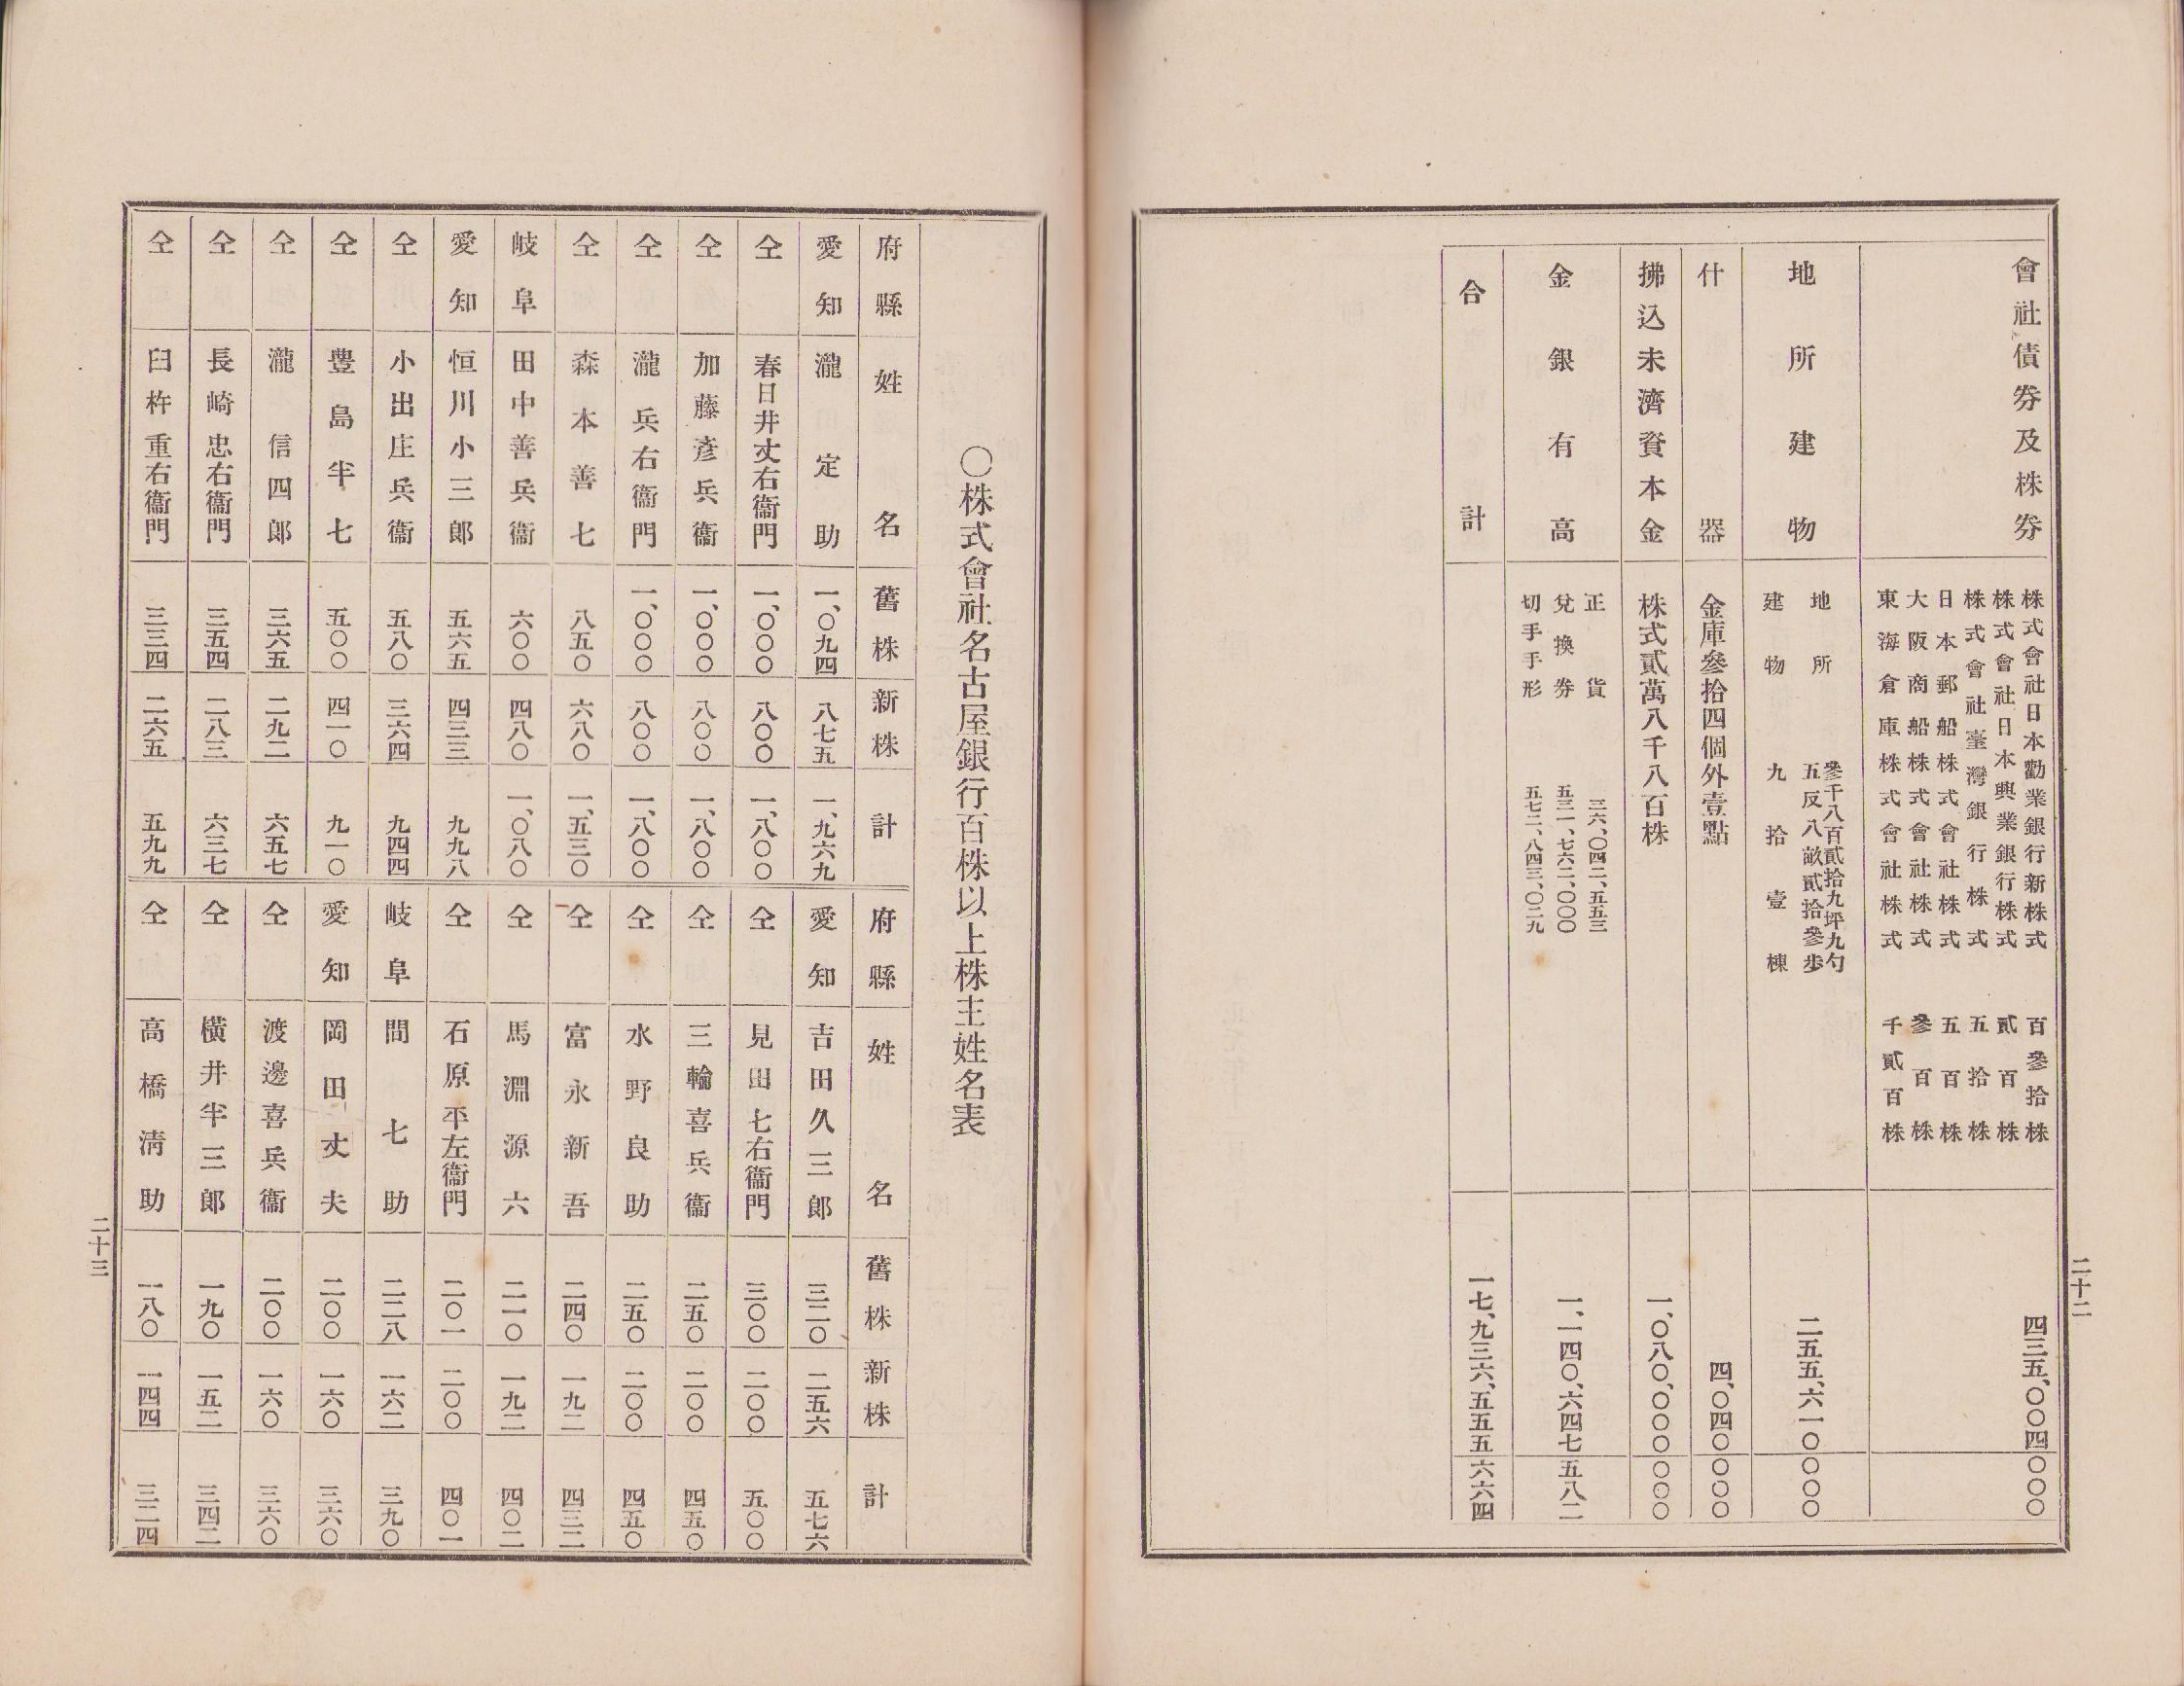 會社債劵及株劵
株式會社日本勸業銀行新株式 百參拾株
株式會社日本興業銀行株式 貳百株
株式會社臺灣銀行株式 五拾株
日本郵船株式會社株式 五百株
大阪商船株式會社株式 參百株
東海倉庫株式會社株式 千貳百株
四三五、〇〇四 〇〇〇
地所建物
地所 參千八百貳拾九坪九勺
五反八畝貳拾參步
建物 九拾壹棟
二五五、六一〇 〇〇〇
什器 金庫參拾四個外壹點 四、〇四〇 〇〇〇
拂込未濟資本金 株式貳萬八千八百株 一、〇八〇、〇〇〇 〇〇〇
金銀有高
正貨 三六、〇四二、五五三
兌換劵 五三一、七六二、〇〇〇
切手手形 五七二、八四三、〇二九
一、一四〇、六四七 五八二
合計 一七、九三六、五五五 六六四
二十二
〇株式會社名古屋銀行百株以上株主姓名表
府縣 姓名 舊株 新株 計
愛知 瀧定助 一、〇九四 八七五 一、九六九
仝 春日井丈右衞門 一、〇〇〇 八〇〇 一、八〇〇
仝 加藤彥兵衞 一、〇〇〇 八〇〇 一、八〇〇
仝 瀧兵右衞門 一、〇〇〇 八〇〇 一、八〇〇
仝 森本善七 八五〇 六八〇 一、五三〇
岐阜 田中善兵衞 六〇〇 四八〇 一、〇八〇
愛知 恒川小三郎 五六五 四三三 九九八
仝 小出庄兵衞 五八〇 三六四 九四四
仝 豊島半七 五〇〇 四一〇 九一〇
仝 瀧信四郎 三六五 二九二 六五七
仝 長崎忠右衞門 三五四 二八三 六三七
仝 臼杵重右衞門 三三四 二六五 五九九
府縣 姓名 舊株 新株 計
愛知 吉田久三郎 三二〇 二五六 五七六
仝 見田七右衞門 三〇〇 二〇〇 五〇〇
仝 三輪喜兵衞 二五〇 二〇〇 四五〇
仝 水野良助 二五〇 二〇〇 四五〇
仝 富永新吾 二四〇 一九二 四三二
仝 馬淵源六 二一〇 一九二 四〇二
仝 石原平左衞門 二〇一 二〇〇 四〇一
岐阜 間七助 二二八 一六二 三九〇
愛知 岡田丈夫 二〇〇 一六〇 三六〇
仝 渡邊喜兵衞 二〇〇 一六〇 三六〇
仝 橫井半三郎 一九〇 一五二 三四二
仝 高橋淸助 一八〇 一四四 三二四
二十三